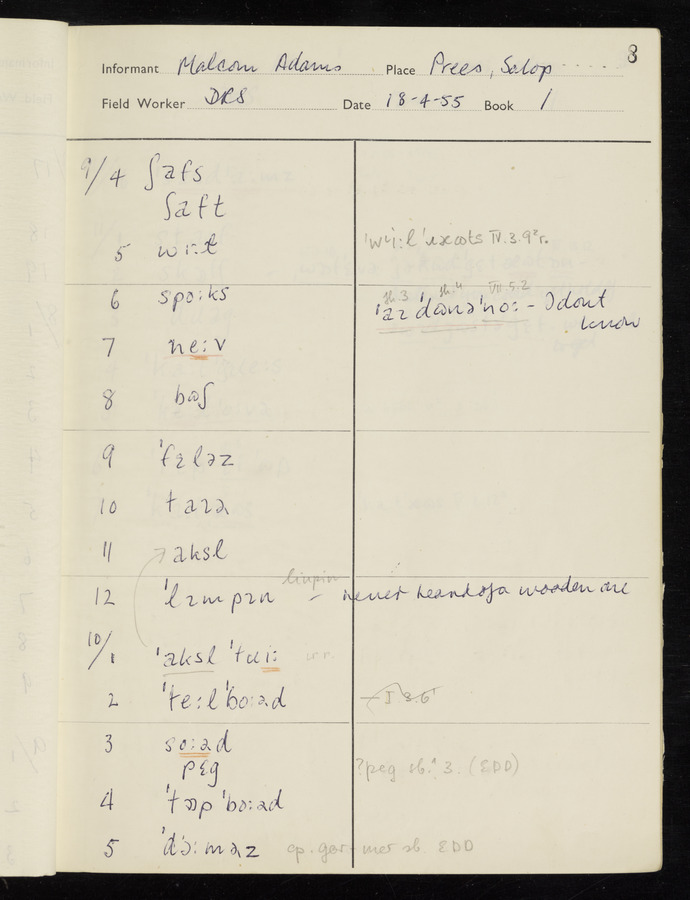 8
Informant Malcom Adams Place Prees, Salop
Field Worker DRS Date 18-4-55 Book 1
9/4 ʃafs
ʃaft
5 wi:l 'wi:l IV.3.9 r.
6 spo:ks 'aɪ 'dəʊnə 'no: - I dont
sb.3 sb.4 VIII.5.2
know
7 ne:v
8 bɒʃ
9 'fɛləz
10 taɪə
11 aksl
12 'lɪmpɪn linpin – never heard of a wooden one
10/1 'aksl 'tɹi: u.r.
2 'te:l 'bo:əd I.3.6
3 so:əd
pɛg ?peg sb.¹ 3. (EDD)
4 'tɒp 'bo:əd
5 'dɔ:məz cp. gor-mer sb. EDD